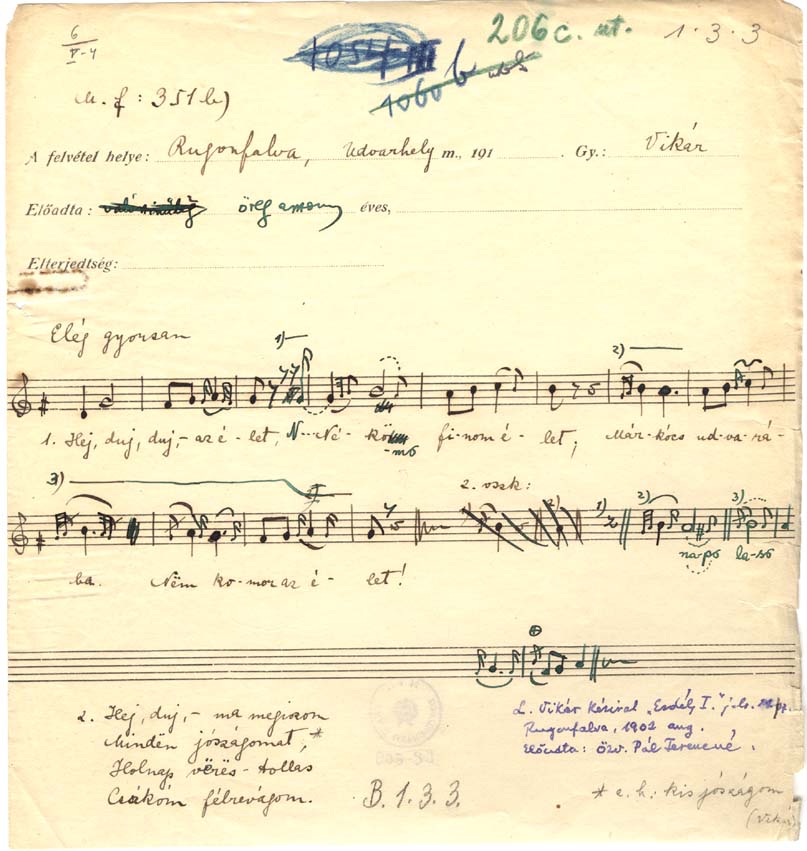 6
V-4
206 c. ut.
1060 b
1 . 3 . 3
M. f : 351 b)
A felvétel helye: Rugonfalva, Udvarhely m., 191 . Gy.: Vikár
Előadta: öreg asszony éves,
Elterjedtség:
Elég gyorsan
1)
2)
1. Hej, duj, duj,- az é - let, N- Né - kö -mö fi-nom é - let, Már-kócs ud-va-rá-
3)
2. vszk:
1) 2) 3)
na-po la-so
ba. Nëm ko-mor az é - let!
2. Hej, duj,- ma megiszom
Mindën jószágomat,*
Holnap vörës-tollas
Csákóm félrevágom.
B. 1. 3. 3.
L. Vikár kézirat „Erdély I."
Rugonfalva, 1902 aug.
Előadta: özv. Pál Ferencné.
* e. h: kis jószágom
(Vikár)